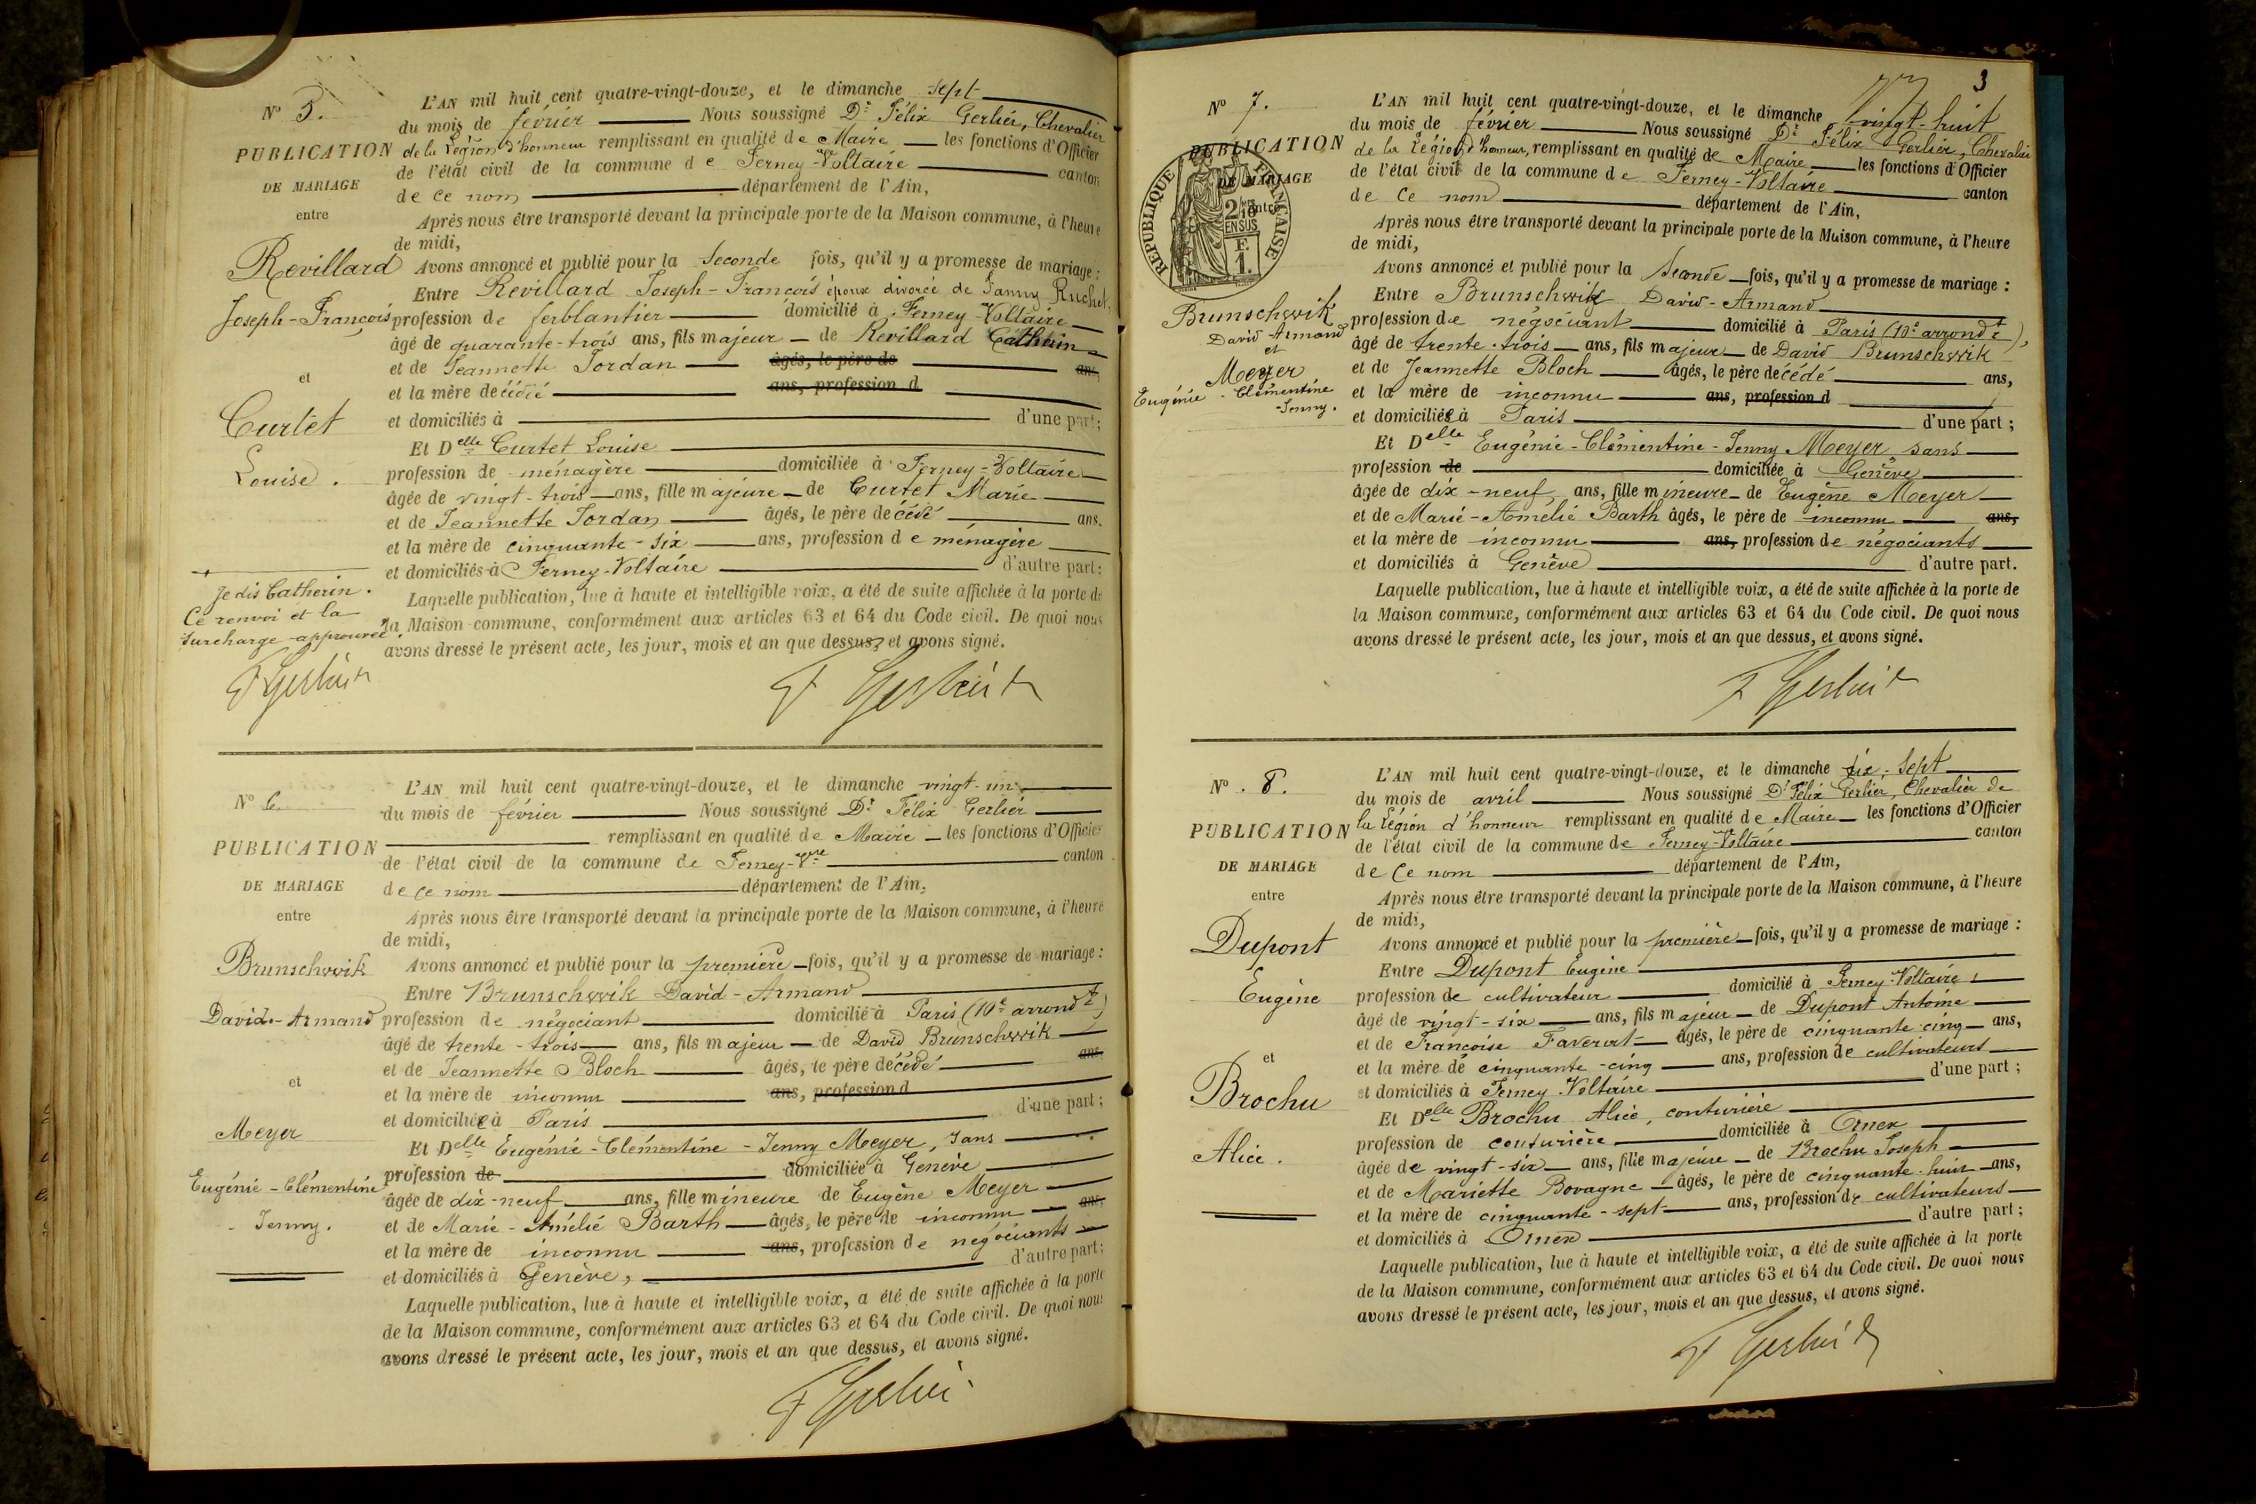 N° 5.
PUBLICATION
DE MARIAGE
entre
Revillard
Joseph-François
et
Curtet
Louise.
Je dis Catherin.
Ce renvoi et la
surcharge approuvée.
F Gerlier
L'AN mil huit cent quatre-vingt-douze, et le dimanche sept
du mois de février Nous soussigné Dr Félix Gerlier, Chevalier
de la Légion d'honneur remplissant en qualité de Maire les fonctions d'Officier
de l'état civil de la commune de Ferney-Voltaire canton
de ce nom département de l'Ain,
Après nous être transporté devant la principale porte de la Maison commune, à l'heure
de midi,
Avons annoncé et publié pour la seconde fois, qu'il y a promesse de mariage :
Entre Revillard Joseph-François époux divorcé de Fanny Ruchet,
profession de ferblantier domicilié à Ferney-Voltaire
âgé de quarante-trois ans, fils majeur de Revillard Catherin
et de Jeannette Jordan âgés, le père de ans,
et la mère décédée ans, profession d
et domiciliés à d'une part;
Et Delle Curtet Louise
profession de ménagère domiciliée à Ferney-Voltaire
âgée de vingt-trois ans, fille majeure de Curtet Marie
et de Jeannette Jordan âgés, le père décédé ans.
et la mère de cinquante-six ans, profession de ménagère
et domiciliés à Ferney-Voltaire d'autre part:
Laquelle publication, lue à haute et intelligible voix, a été de suite affichée à la porte de
la Maison commune, conformément aux articles 63 et 64 du Code civil. De quoi nous
avons dressé le présent acte, les jour, mois et an que dessus, et avons signé.
F Gerlier
N° 6.
PUBLICATION
DE MARIAGE
entre
Brunschwik
David-Armand
et
Meyer
Eugénie-Clémentine
-Jenny.
L'AN mil huit cent quatre-vingt-douze, et le dimanche vingt-un
du mois de février Nous soussigné Dr Félix Gerlier
remplissant en qualité de Maire les fonctions d'Officier
de l'état civil de la commune de Ferney-Vre canton
de ce nom département de l'Ain,
Après nous être transporté devant la principale porte de la Maison commune, à l'heure
de midi,
Avons annoncé et publié pour la première fois, qu'il y a promesse de mariage :
Entre Brunschwik David-Armand
profession de négociant domicilié à Paris (10e arrondt)
âgé de trente-trois ans, fils majeur de David Brunschwik
et de Jeannette Bloch âgés, le père décédé ans,
et la mère de inconnu ans, profession d
et domiciliée à Paris d'une part;
Et Delle Eugénie-Clémentine-Jenny Meyer, sans
profession de domiciliée à Genève
âgée de dix-neuf ans, fille mineure de Eugène Meyer
et de Marie-Amélie Barth âgés, le père de inconnu ans,
et la mère de inconnu ans, profession de négociants
et domiciliés à Genève, d'autre part;
Laquelle publication, lue à haute et intelligible voix, a été de suite affichée à la porte
de la Maison commune, conformément aux articles 63 et 64 du Code civil. De quoi nous
avons dressé le présent acte, les jour, mois et an que dessus, et avons signé.
F Gerlier
3
N° 7.
PUBLICATION
DE MARIAGE
entre
RÉPUBLIQUE FRANÇAISE
EN SUS
F.
1.
Brunschwik
David-Armand
et
Meyer
Eugénie-Clémentine
-Jenny.
L'AN mil huit cent quatre-vingt-douze, et le dimanche vingt-huit
du mois de février Nous soussigné Dr Félix Gerlier, Chevalier
de la Légion d'honneur, remplissant en qualité de Maire les fonctions d'Officier
de l'état civil de la commune de Ferney-Voltaire canton
de ce nom département de l'Ain,
Après nous être transporté devant la principale porte de la Maison commune, à l'heure
de midi,
Avons annoncé et publié pour la seconde fois, qu'il y a promesse de mariage :
Entre Brunschwik David-Armand
profession de négociant domicilié à Paris (10e arrondt),
âgé de trente-trois ans, fils majeur de David Brunschwik
et de Jeannette Bloch âgés, le père décédé ans,
et la mère de inconnu ans, profession d
et domiciliée à Paris d'une part ;
Et Delle Eugénie-Clémentine-Jenny Meyer sans
profession de domiciliée à Genève
âgée de dix-neuf ans, fille mineure de Eugène Meyer
et de Marie-Amélie Barth âgés, le père de inconnu ans,
et la mère de inconnu ans, profession de négociants
et domiciliés à Genève d'autre part.
Laquelle publication, lue à haute et intelligible voix, a été de suite affichée à la porte de
la Maison commune, conformément aux articles 63 et 64 du Code civil. De quoi nous
avons dressé le présent acte, les jour, mois et an que dessus, et avons signé.
F Gerlier
N° 8.
PUBLICATION
DE MARIAGE
entre
Dupont
Eugène
et
Brochu
Alice.
L'AN mil huit cent quatre-vingt-douze, et le dimanche dix-sept
du mois de avril Nous soussigné Dr Félix Gerlier, Chevalier de
la Légion d'honneur remplissant en qualité de Maire les fonctions d'Officier
de l'état civil de la commune de Ferney-Voltaire canton
de ce nom département de l'Ain,
Après nous être transporté devant la principale porte de la Maison commune, à l'heure
de midi,
Avons annoncé et publié pour la première fois, qu'il y a promesse de mariage :
Entre Dupont Eugène
profession de cultivateur domicilié à Ferney-Voltaire,
âgé de vingt-six ans, fils majeur de Dupont Antoine
et de Françoise âgés, le père de cinquante-cinq ans,
et la mère de cinquante-cinq ans, profession de cultivateurs
et domiciliés à Ferney-Voltaire d'une part ;
Et Delle Brochu Alice, couturière
profession de couturière domiciliée à Ornex
âgée de vingt-six ans, fille majeure de Brochu Joseph
et de Mariette Bovagne âgés, le père de cinquante-huit ans,
et la mère de cinquante-sept ans, profession de cultivateurs
et domiciliés à Ornex d'autre part ;
Laquelle publication, lue à haute et intelligible voix, a été de suite affichée à la porte
de la Maison commune, conformément aux articles 63 et 64 du Code civil. De quoi nous
avons dressé le présent acte, les jour, mois et an que dessus, et avons signé.
F Gerlier